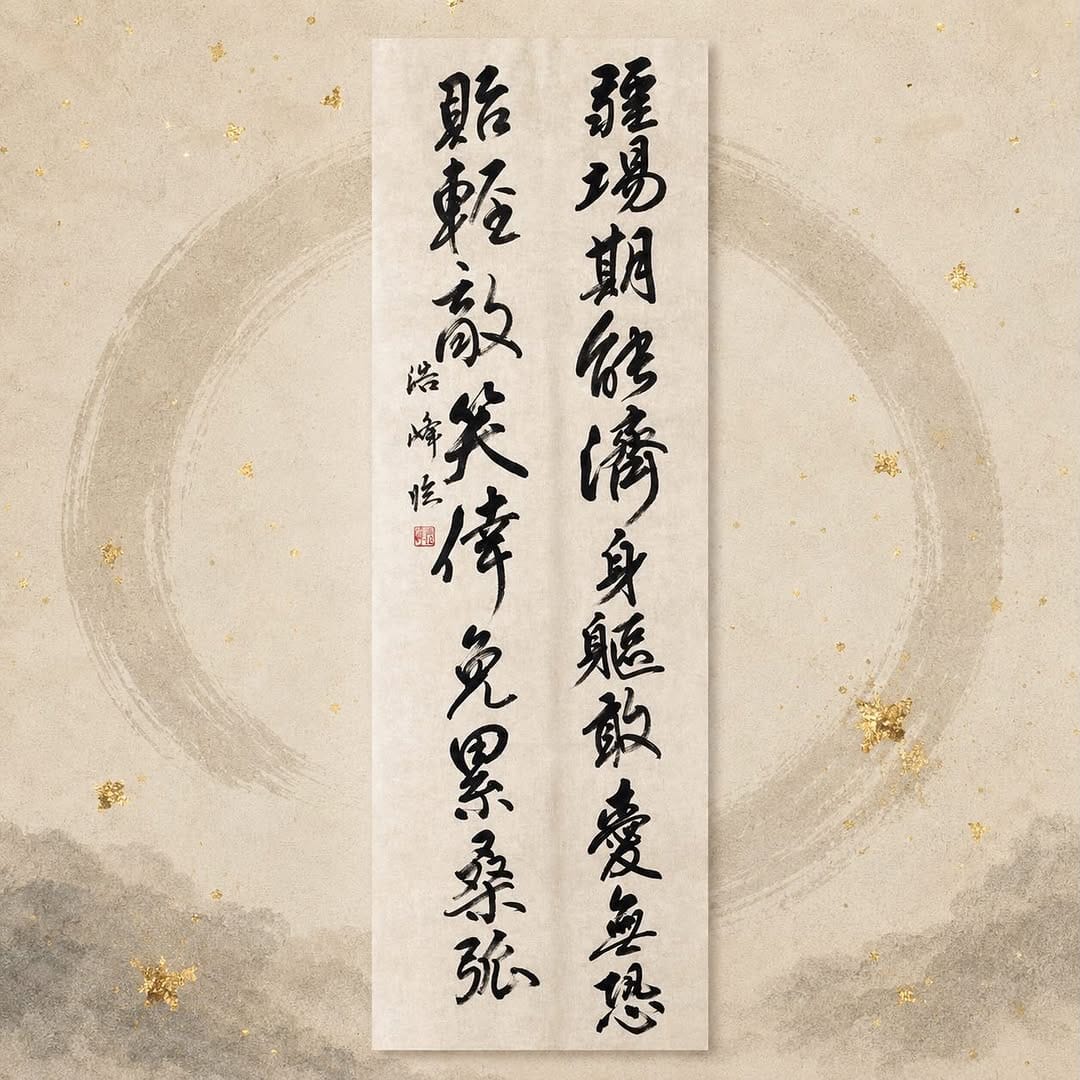 疆場期能濟身軀敢愛無恐
貽輕敵笑倖免累桑弧
浩峰臨